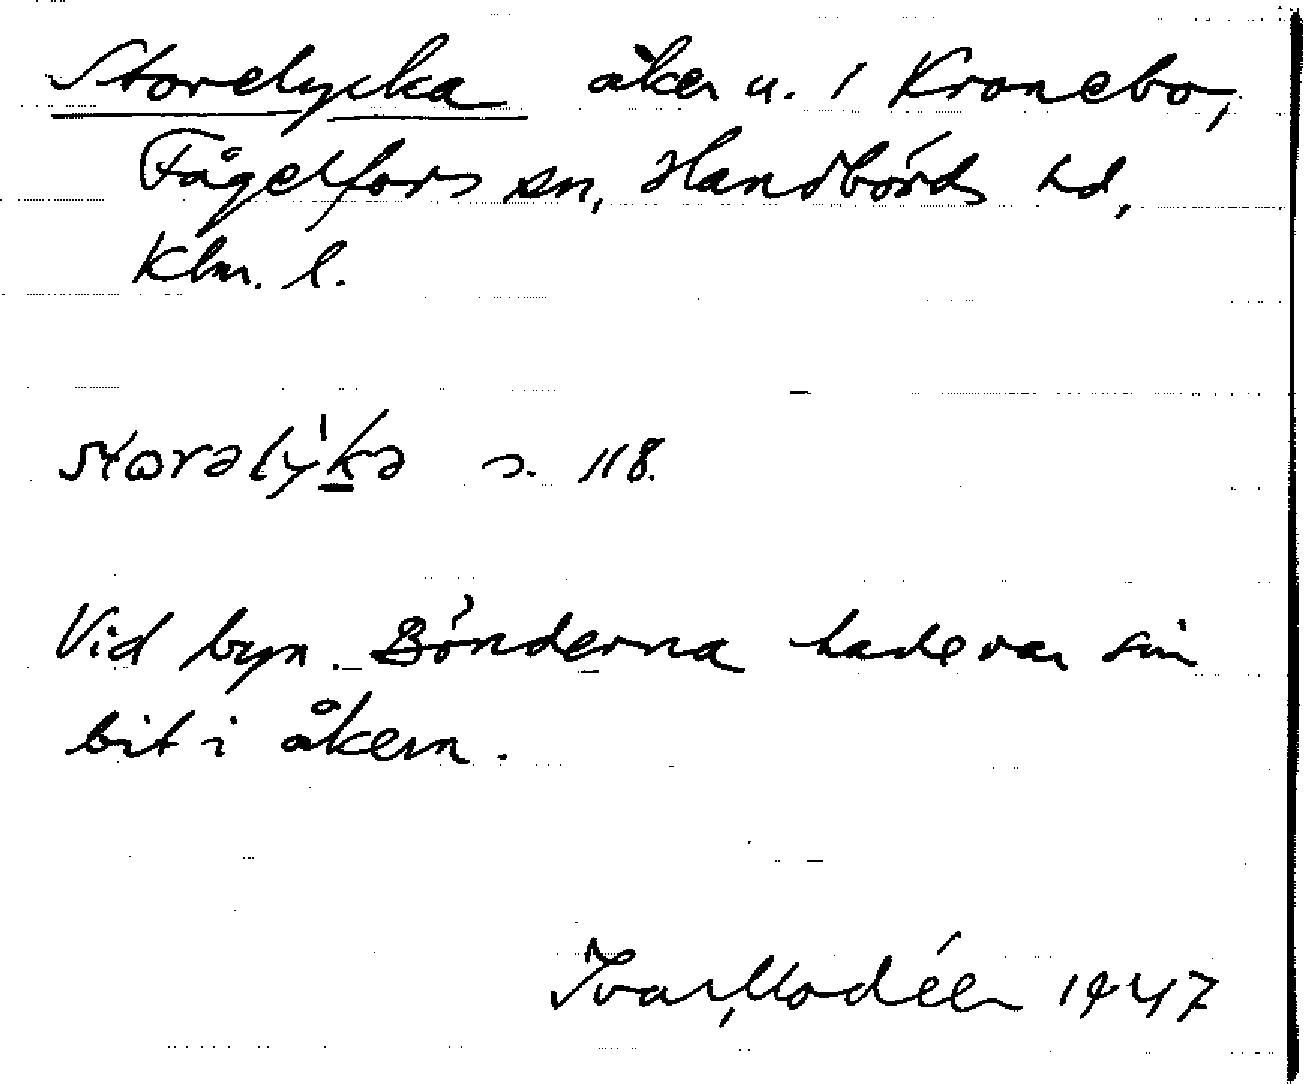 Storelycka åker u. 1 Kronebo,
Fågelfors sn, Handbörds hd,
Klm. l.
storəly̍k̠ə s. 118.
Vid byn. Bönderna hade var sin
bit i åkern.
Ivar Modéer 1947